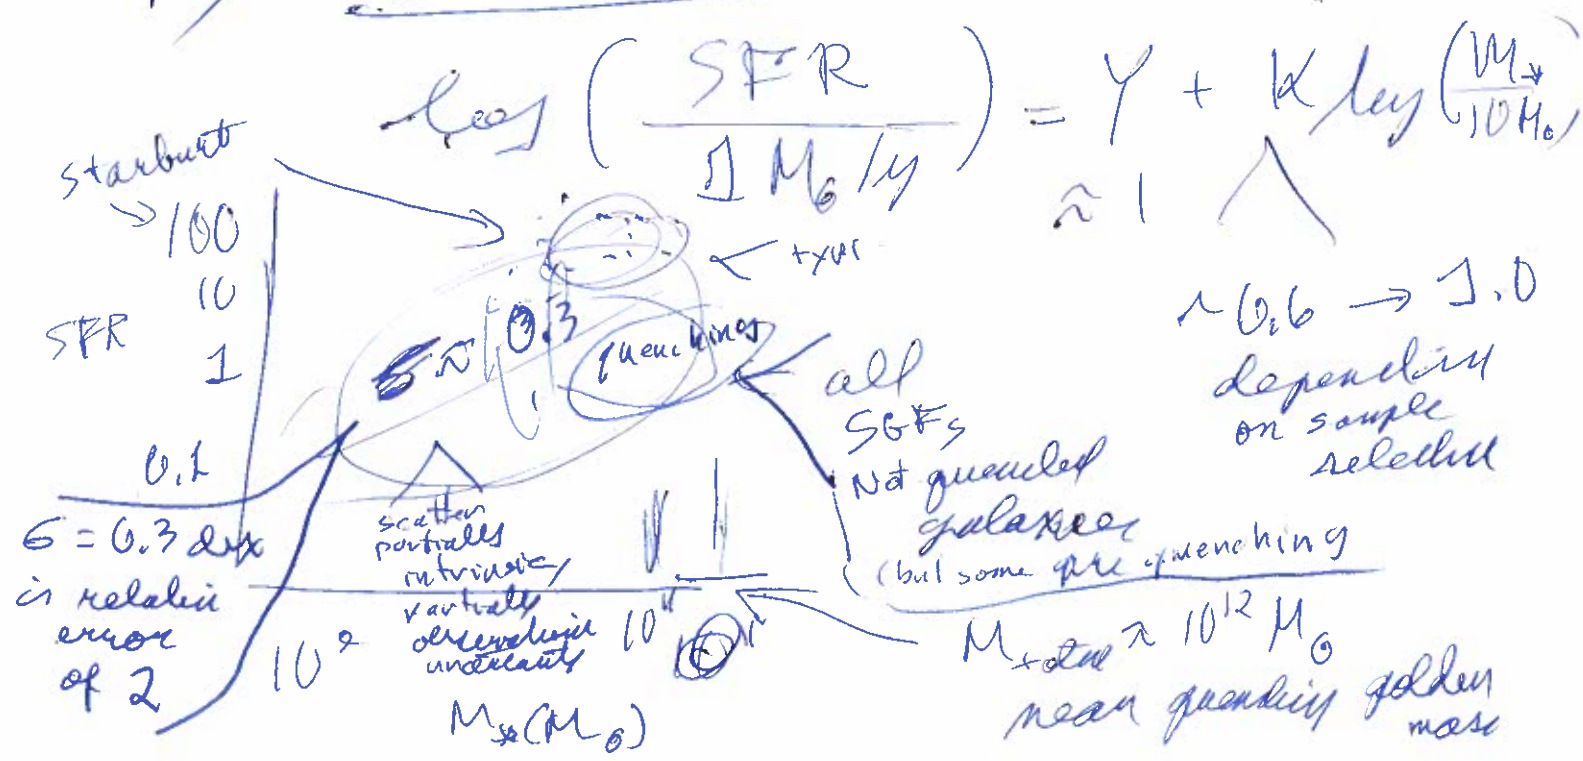 log ( SFR / 1 M⊙/y ) = Y + K log ( M* / 10 M⊙ )
≈ 1
~0.6 → 1.0
depending
on sample
selection
starburst
→ 100
10
SFR
1
0.1
σ ≈ 0.3
quenching
all
SGFs
Not quenched
galaxies
(but some are quenching
σ = 0.3 dex
is relative
error
of 2
scatter
partially
intrinsic,
partially
observation
uncertainty
10⁹
10¹¹
M*(M⊙)
M total ≈ 10¹² M⊙
near quenching golden
mass